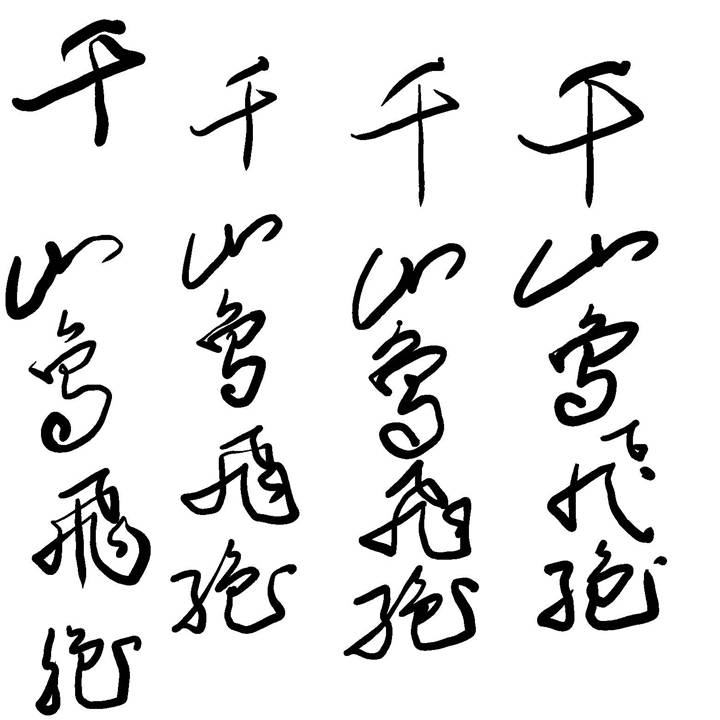 千山鸟飞绝
千山鸟飞绝
千山鸟飞绝
千山鸟飞绝